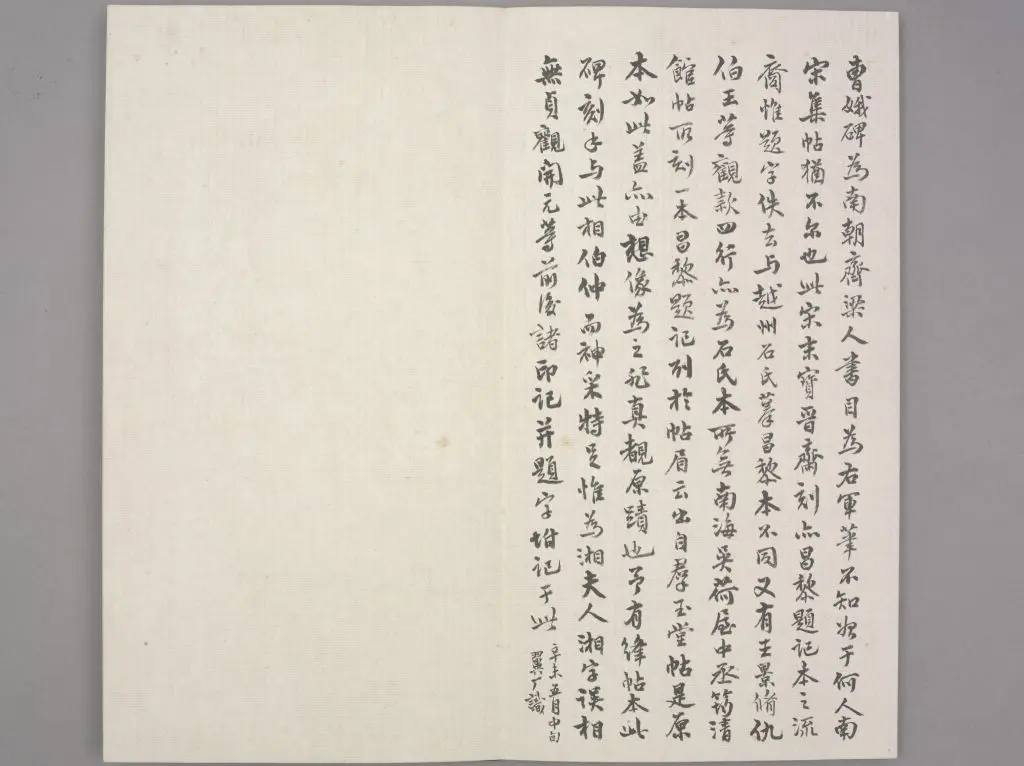 曹娥碑為南朝齊梁人書目為右軍筆不知始于何人南
宋集帖猶不尒也此宋末寶晉齋刻亦昌黎題記本之流
裔惟題字佚去与越州石氏摹昌黎本不同又有王景脩仇
伯玉等觀款四行亦為石氏本所無南海吳荷屋中丞筠清
館帖所刻一本昌黎題記列於帖眉云出自羣玉堂帖是原
本如此蓋亦由想像為之非真覩原蹟也予有絳帖本此
碑刻手与此相伯仲而神采特足惟為湘夫人湘字误相
無貞觀開元等前後諸印記并題字坿記于此
辛未五月中旬
翼广識